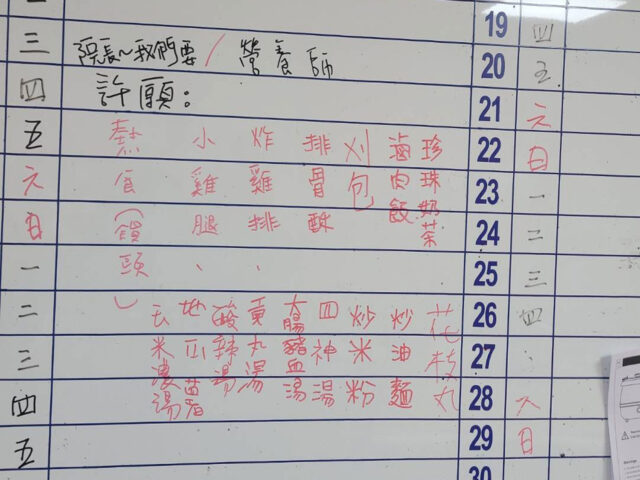 三
四
五
六
日
一
二
三
四
五
院長~我們要/營養師
許願:
珍珠奶茶
滷肉飯
刈包
排骨酥
炸雞排、
小雞腿、
熱食(饅頭)
花枝丸
炒油麵
炒米粉
四神湯
大腸豬血湯
貢丸湯
酸辣湯
地瓜薯
玉米濃湯
19 四
20 五
21 六
22 日
23 一
24 二
25 三
26 四
27
28 六
29 日
30